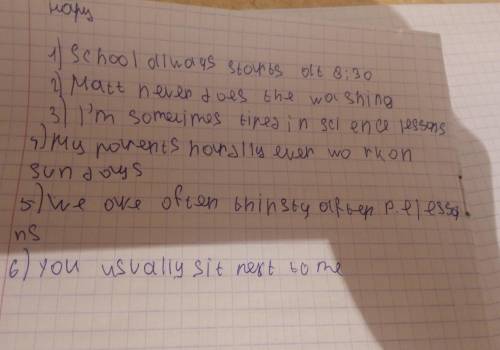 1) School always starts at 8:30
2) Matt never does the washing
3) I'm sometimes tired in science lessons
4) My parents hardly ever work on
sundays
5) We are often thirsty after p.e lesso
ns
6) you usually sit next to me